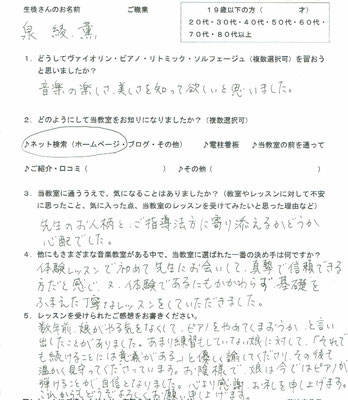 生徒さんのお名前　ご職業　19歳以下の方（　才）
泉 綾、薫　20代・30代・40代・50代・60代・
70代・80代以上
1．どうしてヴァイオリン・ピアノ・リトミック・ソルフェージュ（複数選択可）を習おう
と思いましたか？
音楽の楽しさ、美しさを知って欲しいと思いました。
2．どのようにして当教室をお知りになりましたか？（複数選択可）
♪ネット検索（ホームページ・ブログ・その他）　♪電柱看板　♪当教室の前を通って
♪ご紹介・口コミ（　）　♪その他（　）
3．当教室に通ううえで、気になることはありましたか？（教室やレッスンに対して不安
に思ったこと、気に入った点、当教室のレッスンを受けてみたいと思った理由など）
先生のお人柄と、ご指導法方に寄り添えるかどうか
心配でした。
4．他にもさまざまな音楽教室がある中で、当教室に選ばれた一番の決め手は何ですか？
体験レッスンで初めて先生にお会いして、真摯で信頼できる
方だと感じ、又、体験であるにもかかわらず基礎を
ふまえた丁寧なレッスンをしていただきました。
5．レッスンを受けられたご感想をお書きください。
数年前、娘がやる気をなくして、ピアノをやめてしまおうか、と言い
出したことがありました。あまり練習もしていない娘に対して、「それで
も続けることには意義がある」と優しく諭してくださり、その後も
温かく見守ってくださっています。お陰様で、娘は今ではピアノが
弾けることが自信となりました。心より感謝、お礼を申し上げます。
これからもどうぞよろしくお願い申し上げます。